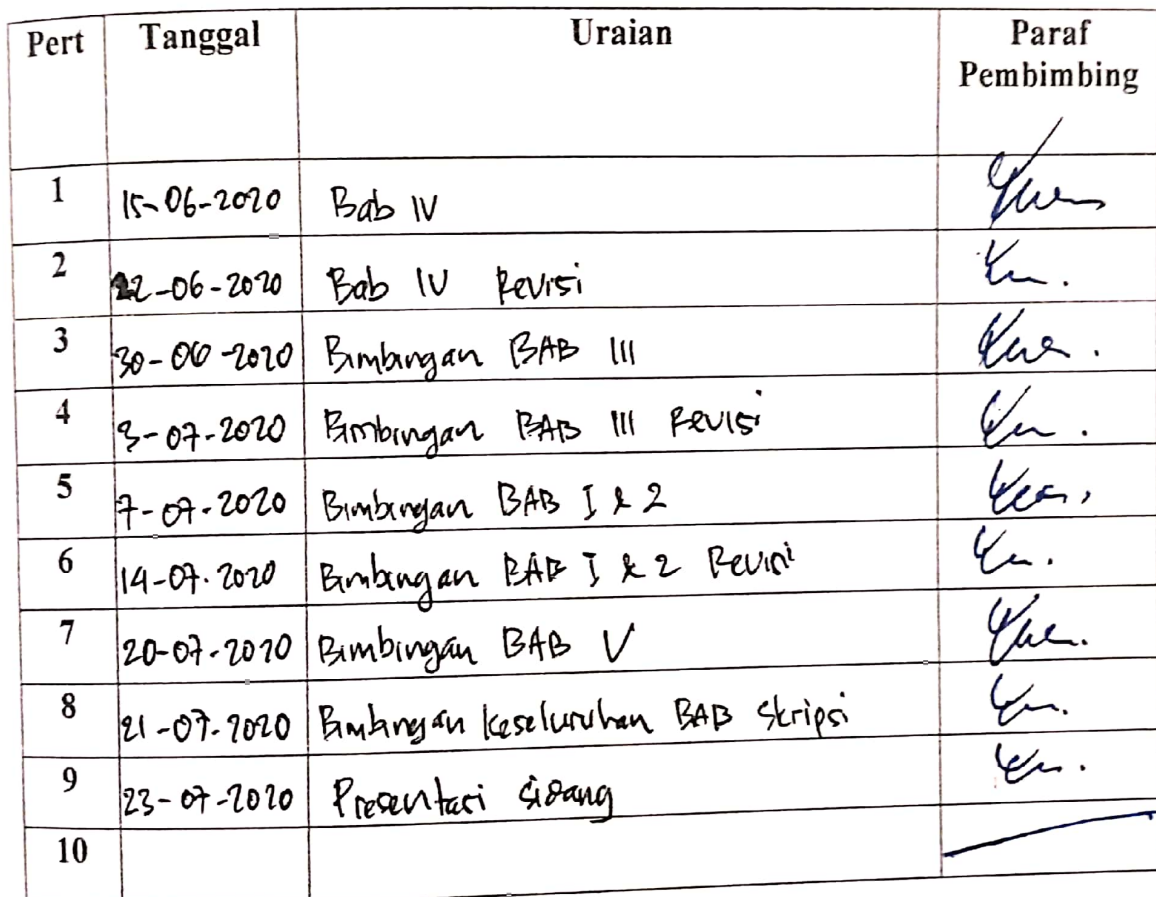 Pert Tanggal Uraian Paraf
Pembimbing
1 15-06-2020 Bab IV
2 22-06-2020 Bab IV Revisi
3 30-06-2020 Bimbingan BAB III
4 3-07-2020 Bimbingan BAB III Revisi
5 7-07-2020 Bimbingan BAB I & 2
6 14-07-2020 Bimbingan BAB I & 2 Revisi
7 20-07-2020 Bimbingan BAB V
8 21-07-2020 Bimbingan Keseluruhan BAB Skripsi
9 23-07-2020 Presentasi Sidang
10